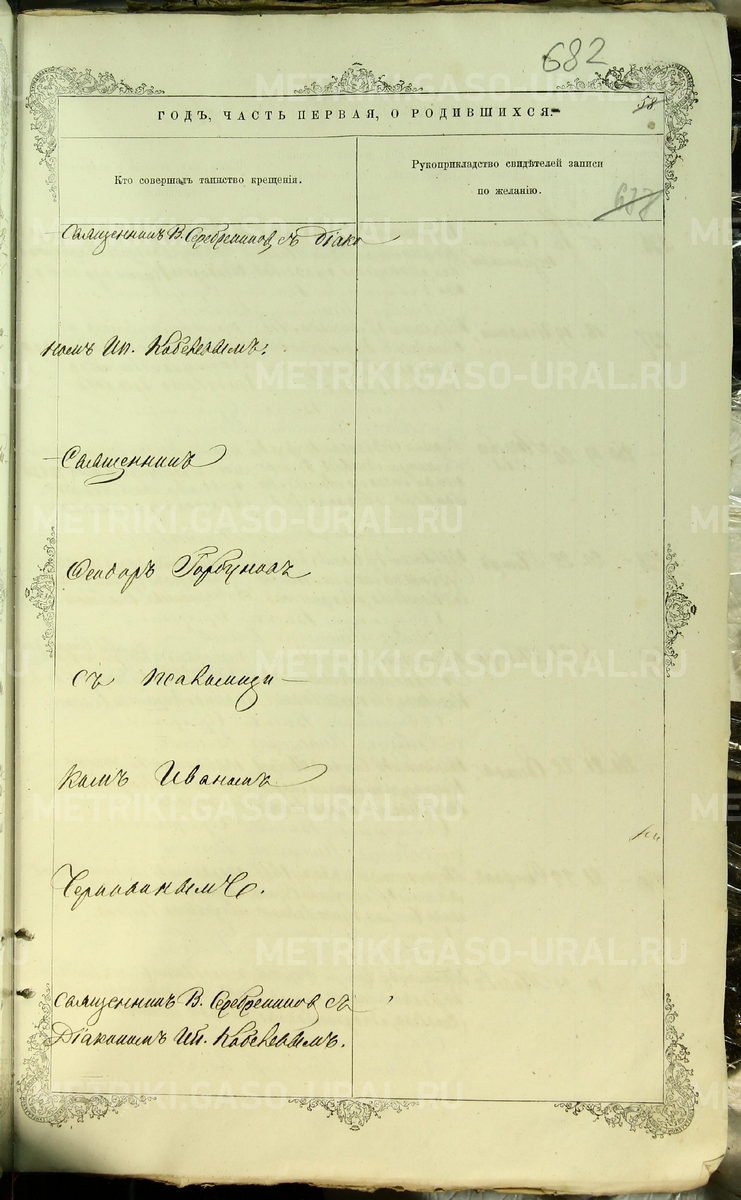 682
58
ГОДЪ, ЧАСТЬ ПЕРВАЯ, О РОДИВШИХСЯ.
Кто совершалъ таинство крещенія.
Рукоприкладство свидѣтелей записи
по желанію.
677
Священникъ В. Серебренниковъ съ діако
номъ Ип.
Священникъ
Феодоръ Горбуновъ
съ псаломщи-
комъ Иваномъ
Священникъ В. Серебренниковъ съ
Діакономъ Ип.
METRIKI.GASO-URAL.RU